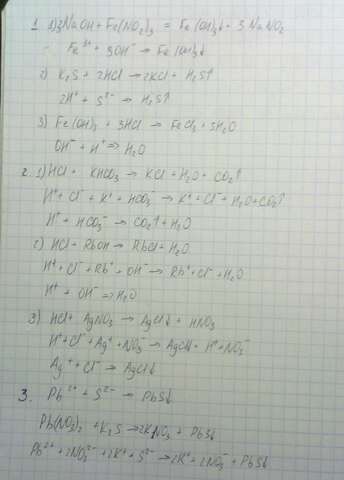 1. 1) 3NaOH + Fe(NO₂)₃ = Fe(OH)₃↓ + 3NaNO₂
Fe³⁺ + 3OH⁻ → Fe(OH)₃↓
2) K₂S + 2HCl → 2KCl + H₂S↑
2H⁺ + S²⁻ → H₂S↑
3) Fe(OH)₃ + 3HCl → FeCl₃ + 3H₂O
OH⁻ + H⁺ => H₂O
2. 1) HCl + KHCO₃ → KCl + H₂O + CO₂↑
H⁺ + Cl⁻ + K⁺ + HCO₃⁻ → K⁺ + Cl⁻ + H₂O + CO₂↑
H⁺ + HCO₃⁻ → CO₂↑ + H₂O
2) HCl + RbOH → RbCl + H₂O
H⁺ + Cl⁻ + Rb⁺ + OH⁻ → Rb⁺ + Cl⁻ + H₂O
H⁺ + OH⁻ → H₂O
3) HCl + AgNO₃ → AgCl↓ + HNO₃
H⁺ + Cl⁻ + Ag⁺ + NO₃⁻ → AgCl↓ + H⁺ + NO₃⁻
Ag⁺ + Cl⁻ → AgCl↓
3. Pb²⁺ + S²⁻ → PbS↓
Pb(NO₃)₂ + K₂S → 2KNO₃ + PbS↓
Pb²⁺ + 2NO₃²⁻ + 2K⁺ + S²⁻ → 2K⁺ + 2NO₃⁻ + PbS↓